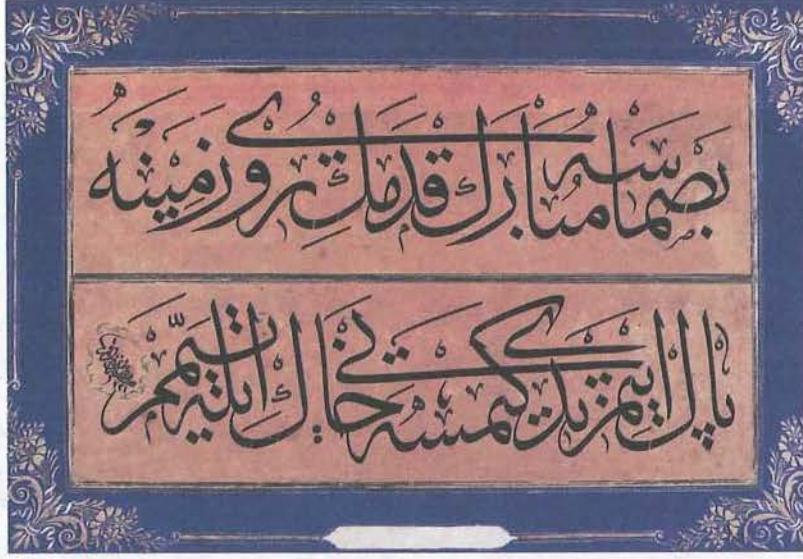 بصماسه مبارك قدمك روى زمينه
پاك ايتمز ايدى كيمسه يى خاك ايله تيمم